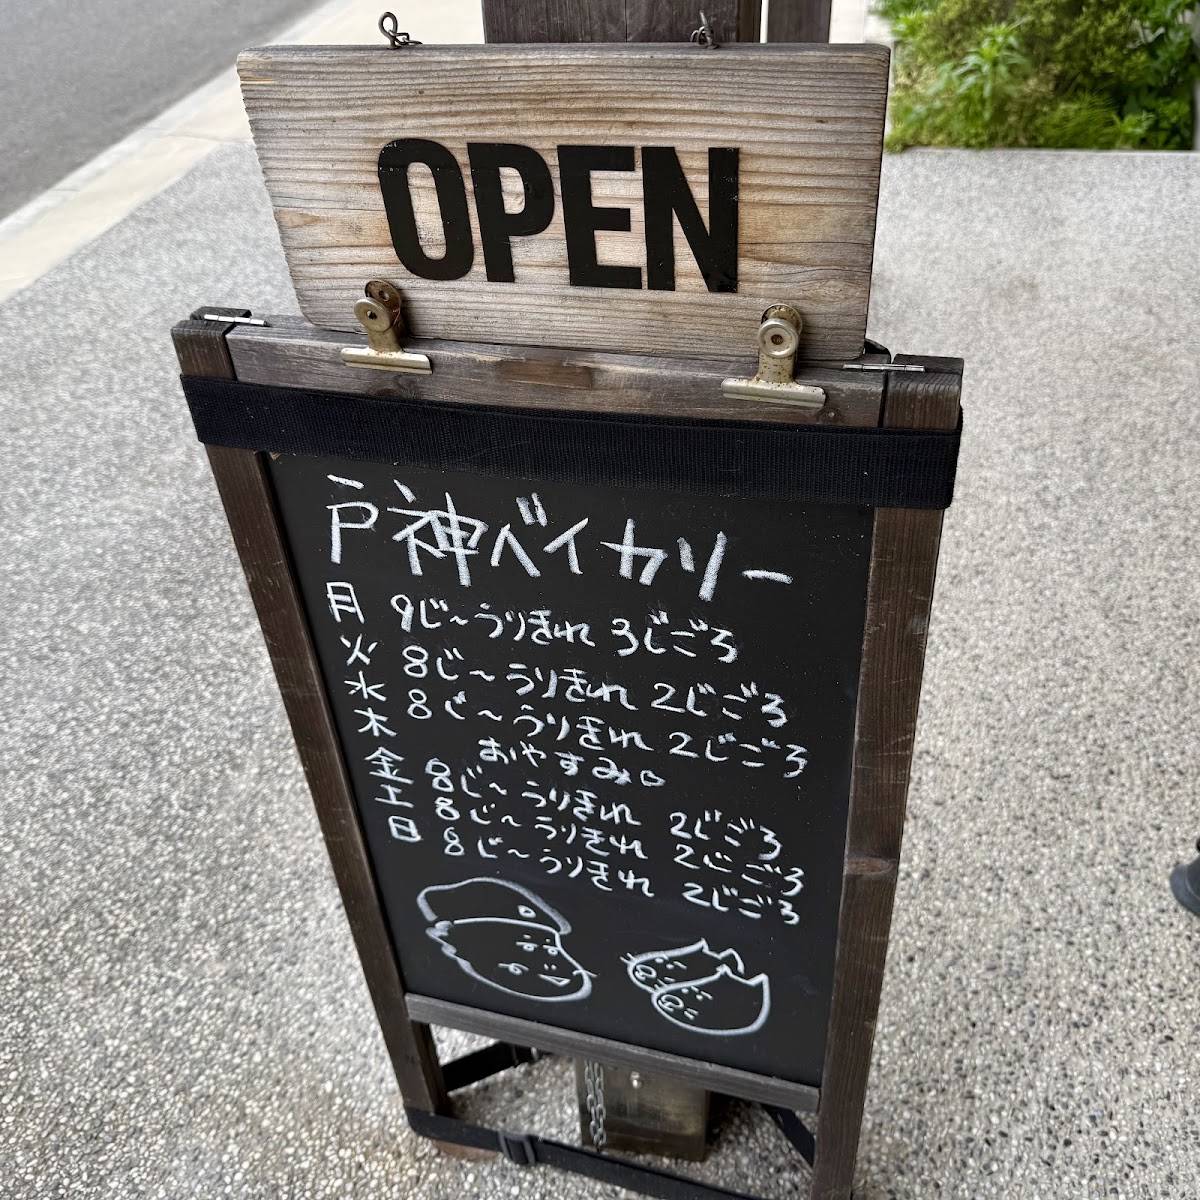 OPEN
戸神ベイカリー
月 9じ～うりきれ 3じごろ
火 8じ～うりきれ 2じごろ
水 8じ～うりきれ 2じごろ
木 おやすみ。
金 8じ～うりきれ 2じごろ
土 8じ～うりきれ 2じごろ
日 8じ～うりきれ 2じごろ